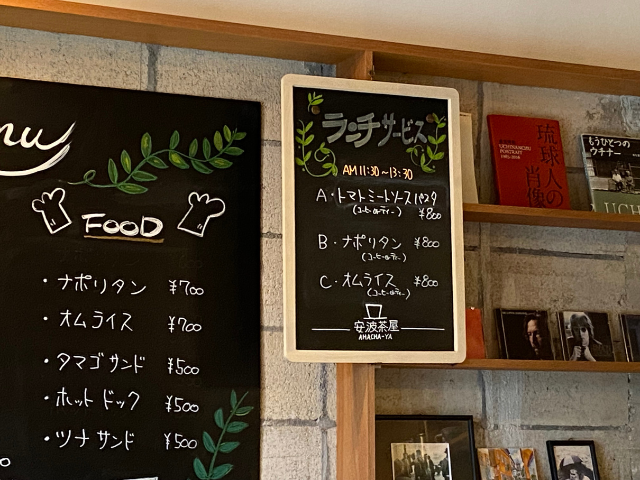 nu
FOOD
・ナポリタン ¥700
・オムライス ¥700
・タマゴサンド ¥500
・ホットドック ¥500
・ツナサンド ¥500
ランチサービス
AM11:30~13:30
A・トマトミートソースパスタ
(コーヒーorティー) ¥800
B・ナポリタン ¥800
(コーヒーorティー)
C・オムライス ¥800
(コーヒーorティー)
安波茶屋
AHACHA-YA
琉球人の肖像
UCHINANCHU
PORTRAIT
もうひとつの
ウチナー
UCHI